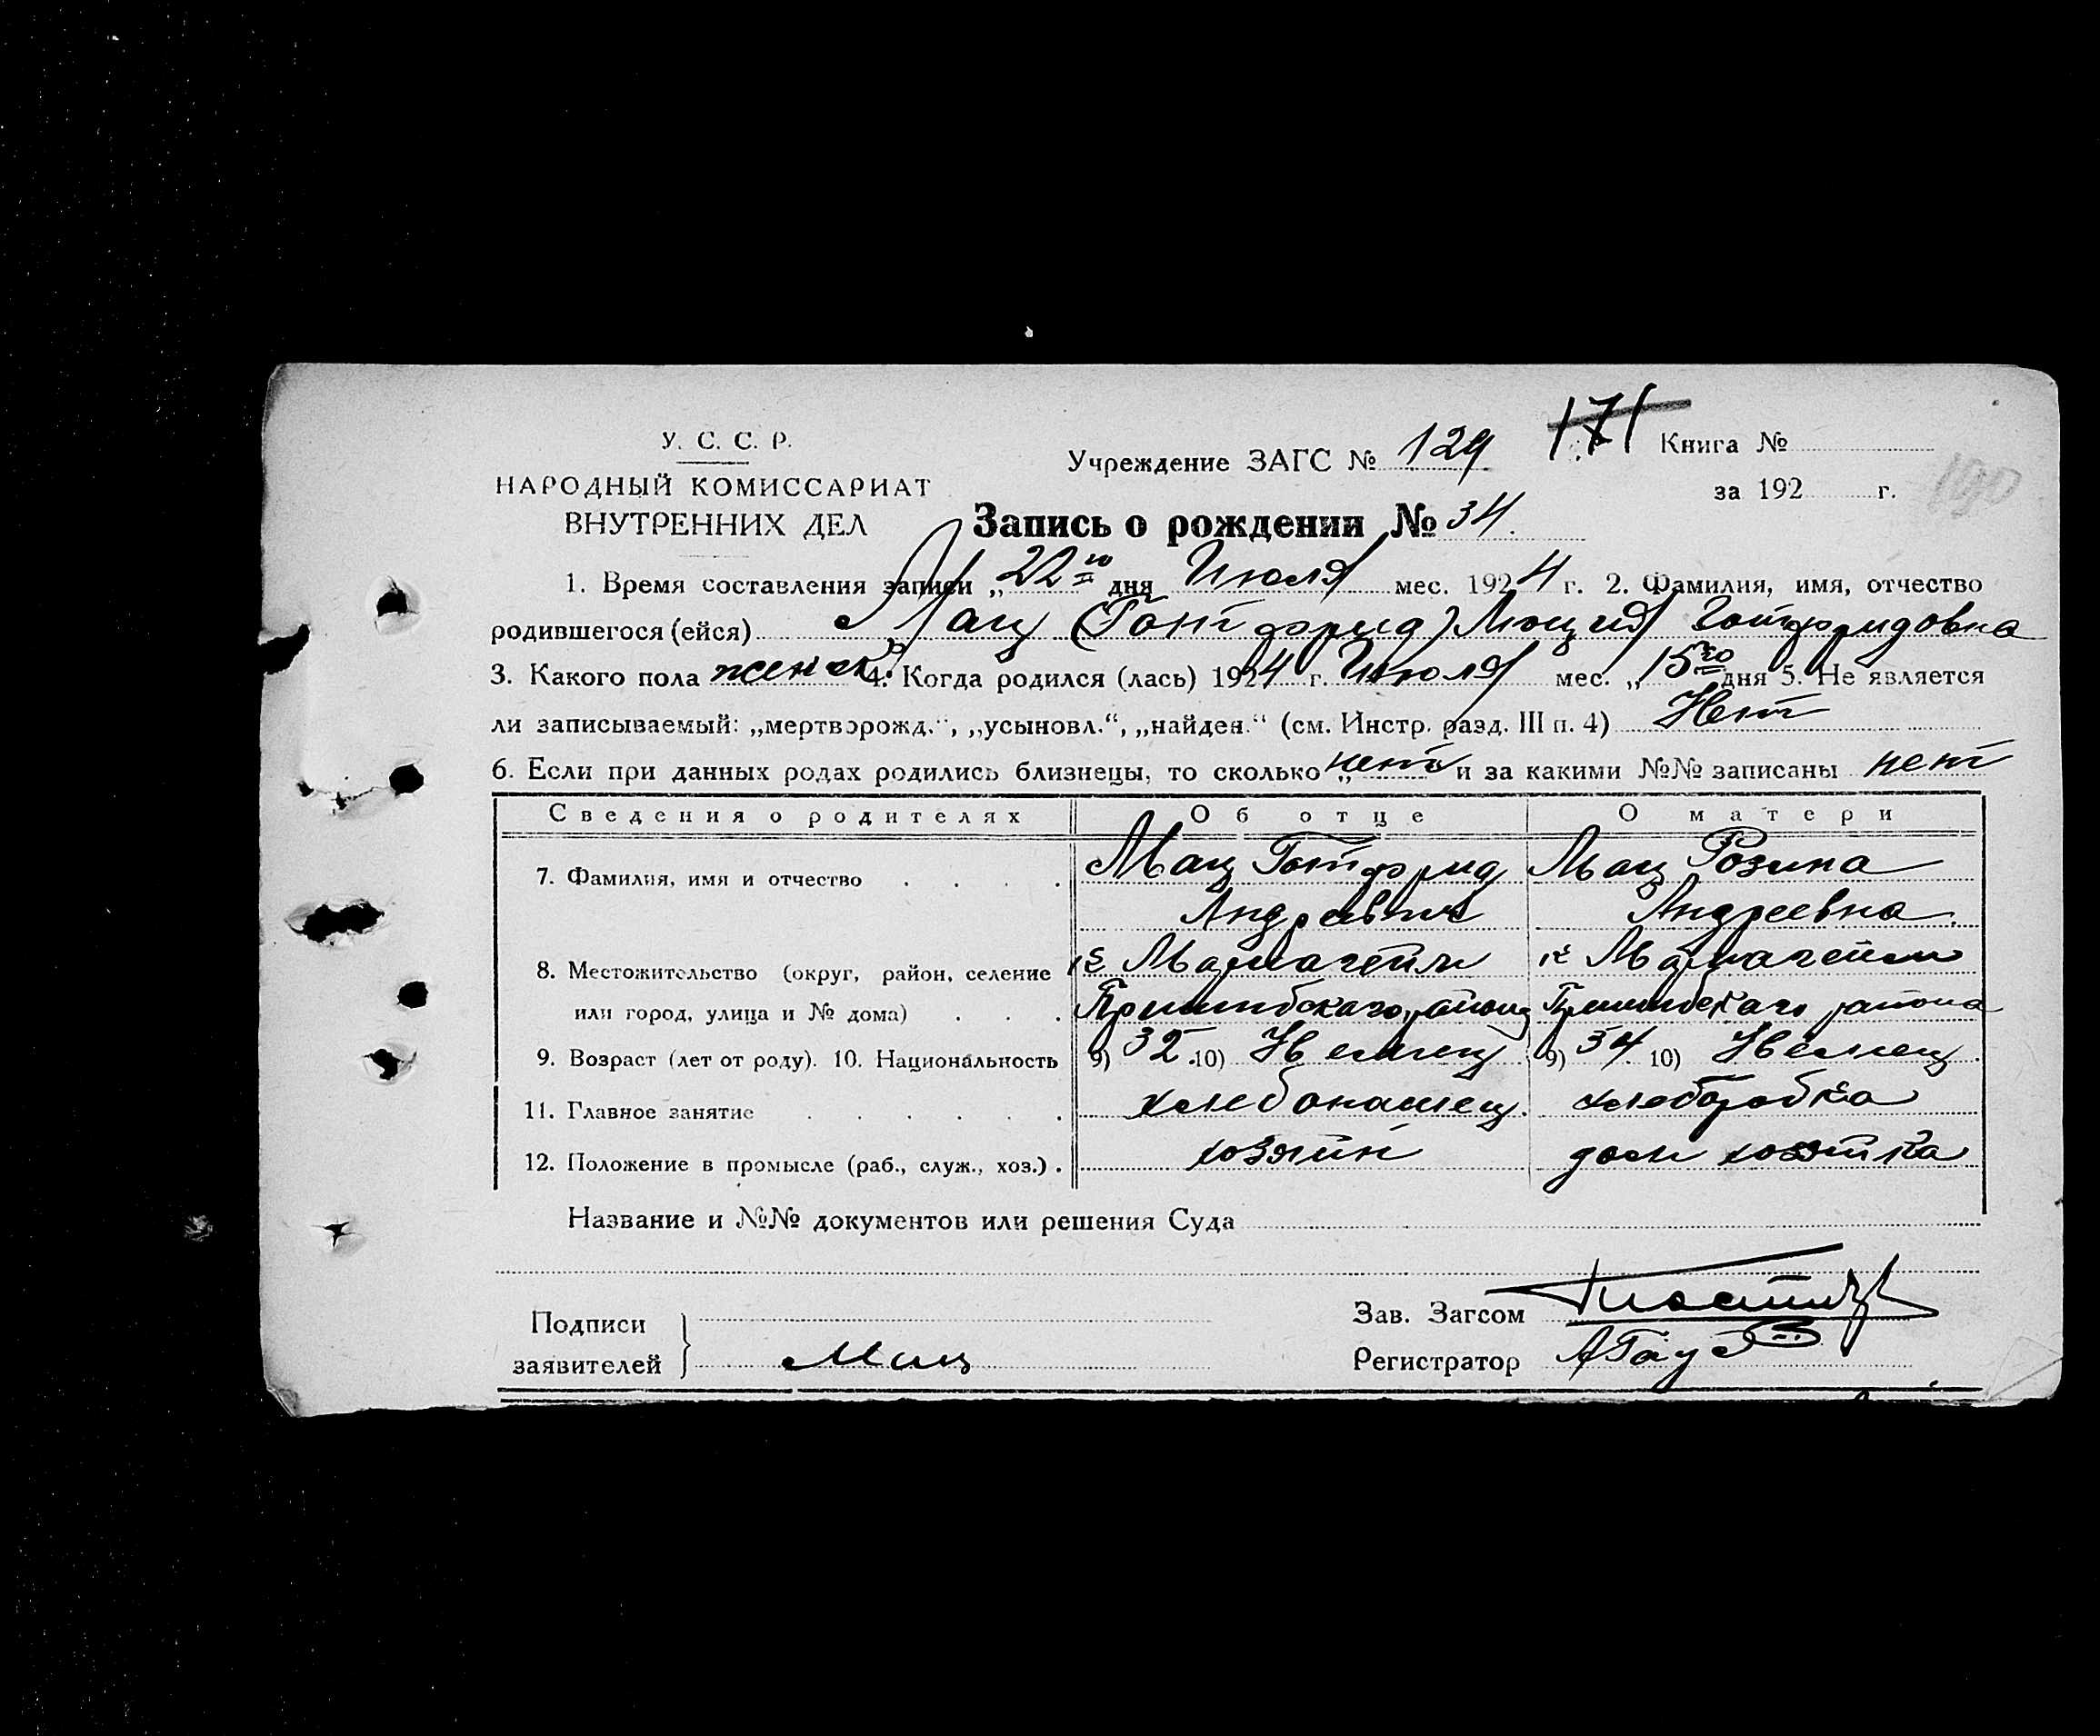 У. С. С. Р.
НАРОДНЫЙ КОМИССАРИАТ
ВНУТРЕННИХ ДЕЛ
Учреждение ЗАГС № 129 171 Книга №
за 192 г. 190
Запись о рождении № 34.
1. Время составления записи „22го дня Июля мес. 1924 г. 2. Фамилия, имя, отчество
родившегося (ейся) Мац (Готфрид) Люция Готфридовна
3. Какого пола женск. 4. Когда родился (лась) 1924 г. Июля мес. „15го дня 5. Не является
ли записываемый: „мертворожд.“, „усыновл.“, „найден.“ (см. Инстр. разд. III п. 4) Нет
6. Если при данных родах родились близнецы, то сколько „нетъ и за какими №№ записаны нет
Сведения о родителях Об отце О матери
7. Фамилия, имя и отчество . . . . Мац Готфрид Мац Розина
Андреевич Андреевна.
8. Местожительство (округ, район, селение
или город, улица и № дома) . . . Пришибского района Пришибскаго района
9. Возраст (лет от роду). 10. Национальность 9) 32 10) Немец 9) 34 10) Немец
11. Главное занятие . . . . хлебопашец. хлеборобка
12. Положение в промысле (раб., служ., хоз.) . хозяин дом хозяйка
Название и №№ документов или решения Суда
Подписи
заявителей } Мац
Зав. Загсом
Регистратор